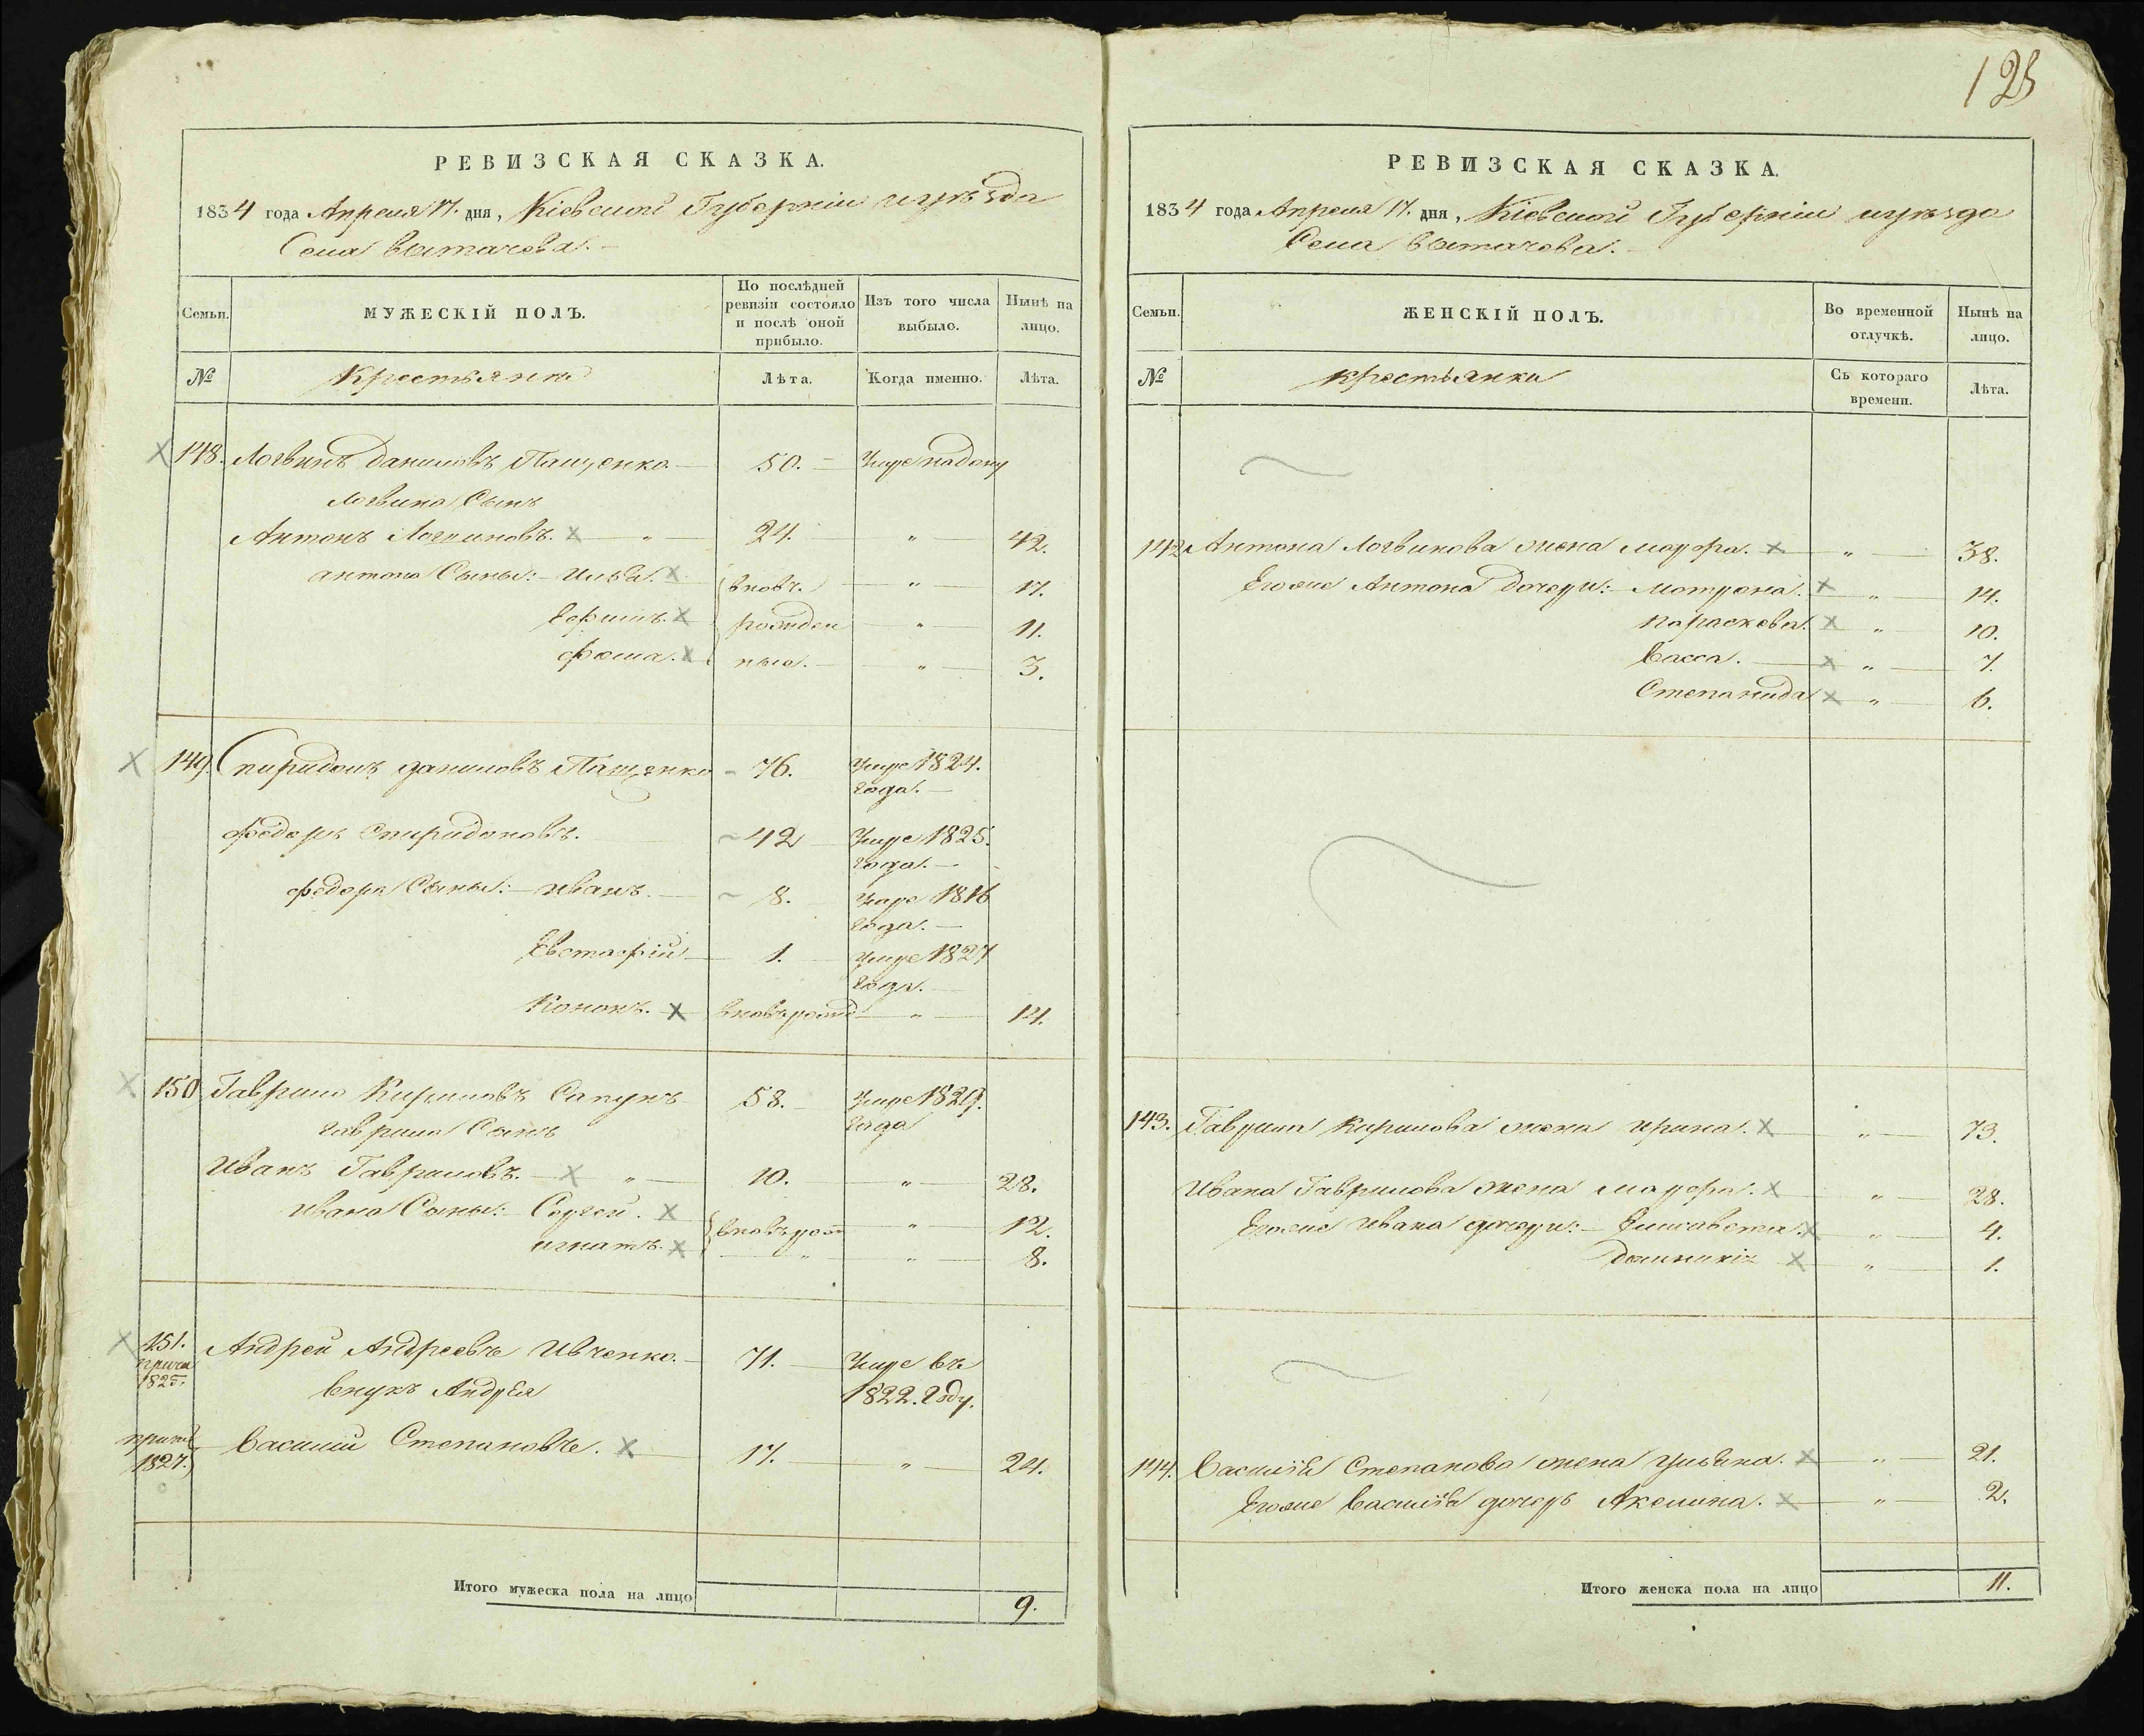 125
РЕВИЗСКАЯ СКАЗКА.
1834 года Апреля 17. дня, Кіевской Губерніи и уѣзда
Села Вытачева.
Семьи. МУЖЕСКІЙ ПОЛЪ. По послѣдней ревизіи состояло и послѣ оной прибыло. Изъ того числа выбыло. Нынѣ на лицо.
№ Крестьяне Лѣта. Когда именно. Лѣта.
148. Логвинъ Даниловъ Пащенко. 50. Умре
Логвина Сынъ
Антонъ Логвиновъ. 24. " 42.
Антона Сыны: Илья. вновь " 17.
Ефимъ. рожден " 11.
Фома. ные. " 3.
149. Спиридонъ Даниловъ Пащенко 76. Умре 1824. года.
Федоръ Спиридоновъ. 42 Умре 1825. года.
Федора Сыны: Иванъ. 8. Умре 1816 года.
Евстафій 1. Умре 1827 года.
Кононъ. вновь рожд " 14.
150 Гаврило Кириловъ Сапунъ 58. Умре 1829. года
Гаврила Сынъ
Иванъ Гавриловъ. " 10. " 28.
Ивана Сыны: Сергей. вновь рож " 12.
Игнатъ. " " 8.
151. 1825. Андрей Андреевъ Ивченко. 71. Умре въ
Внукъ Андрея 1822. Году.
1827. Василий Степановъ. 17. " 24.
Итого мужеска пола на лицо 9.
РЕВИЗСКАЯ СКАЗКА.
1834 года Апреля 17. дня, Кіевской Губерніи и уѣзда
Села Вытачева.
Семьи. ЖЕНСКІЙ ПОЛЪ. Во временной отлучкѣ. Нынѣ на лицо.
№ Крестьянки Съ котораго времени. Лѣта.
142 Антона Логвинова жена Мавра. " 38.
Его же Антона дочери: Мотрона. " 14.
Параскева. " 10.
Васса. " 7.
Степанида " 6.
143. Гаврила Кирилова жена Ирина. " 73.
Ивана Гаврилова жена Мавра. " 28.
Его же Ивана дочери: Елисавета. " 4.
Домникія " 1.
144. Василія Степанова жена Ульяна. " 21.
Его же Василія дочерь Акелина. " 2.
Итого женска пола на лицо 11.